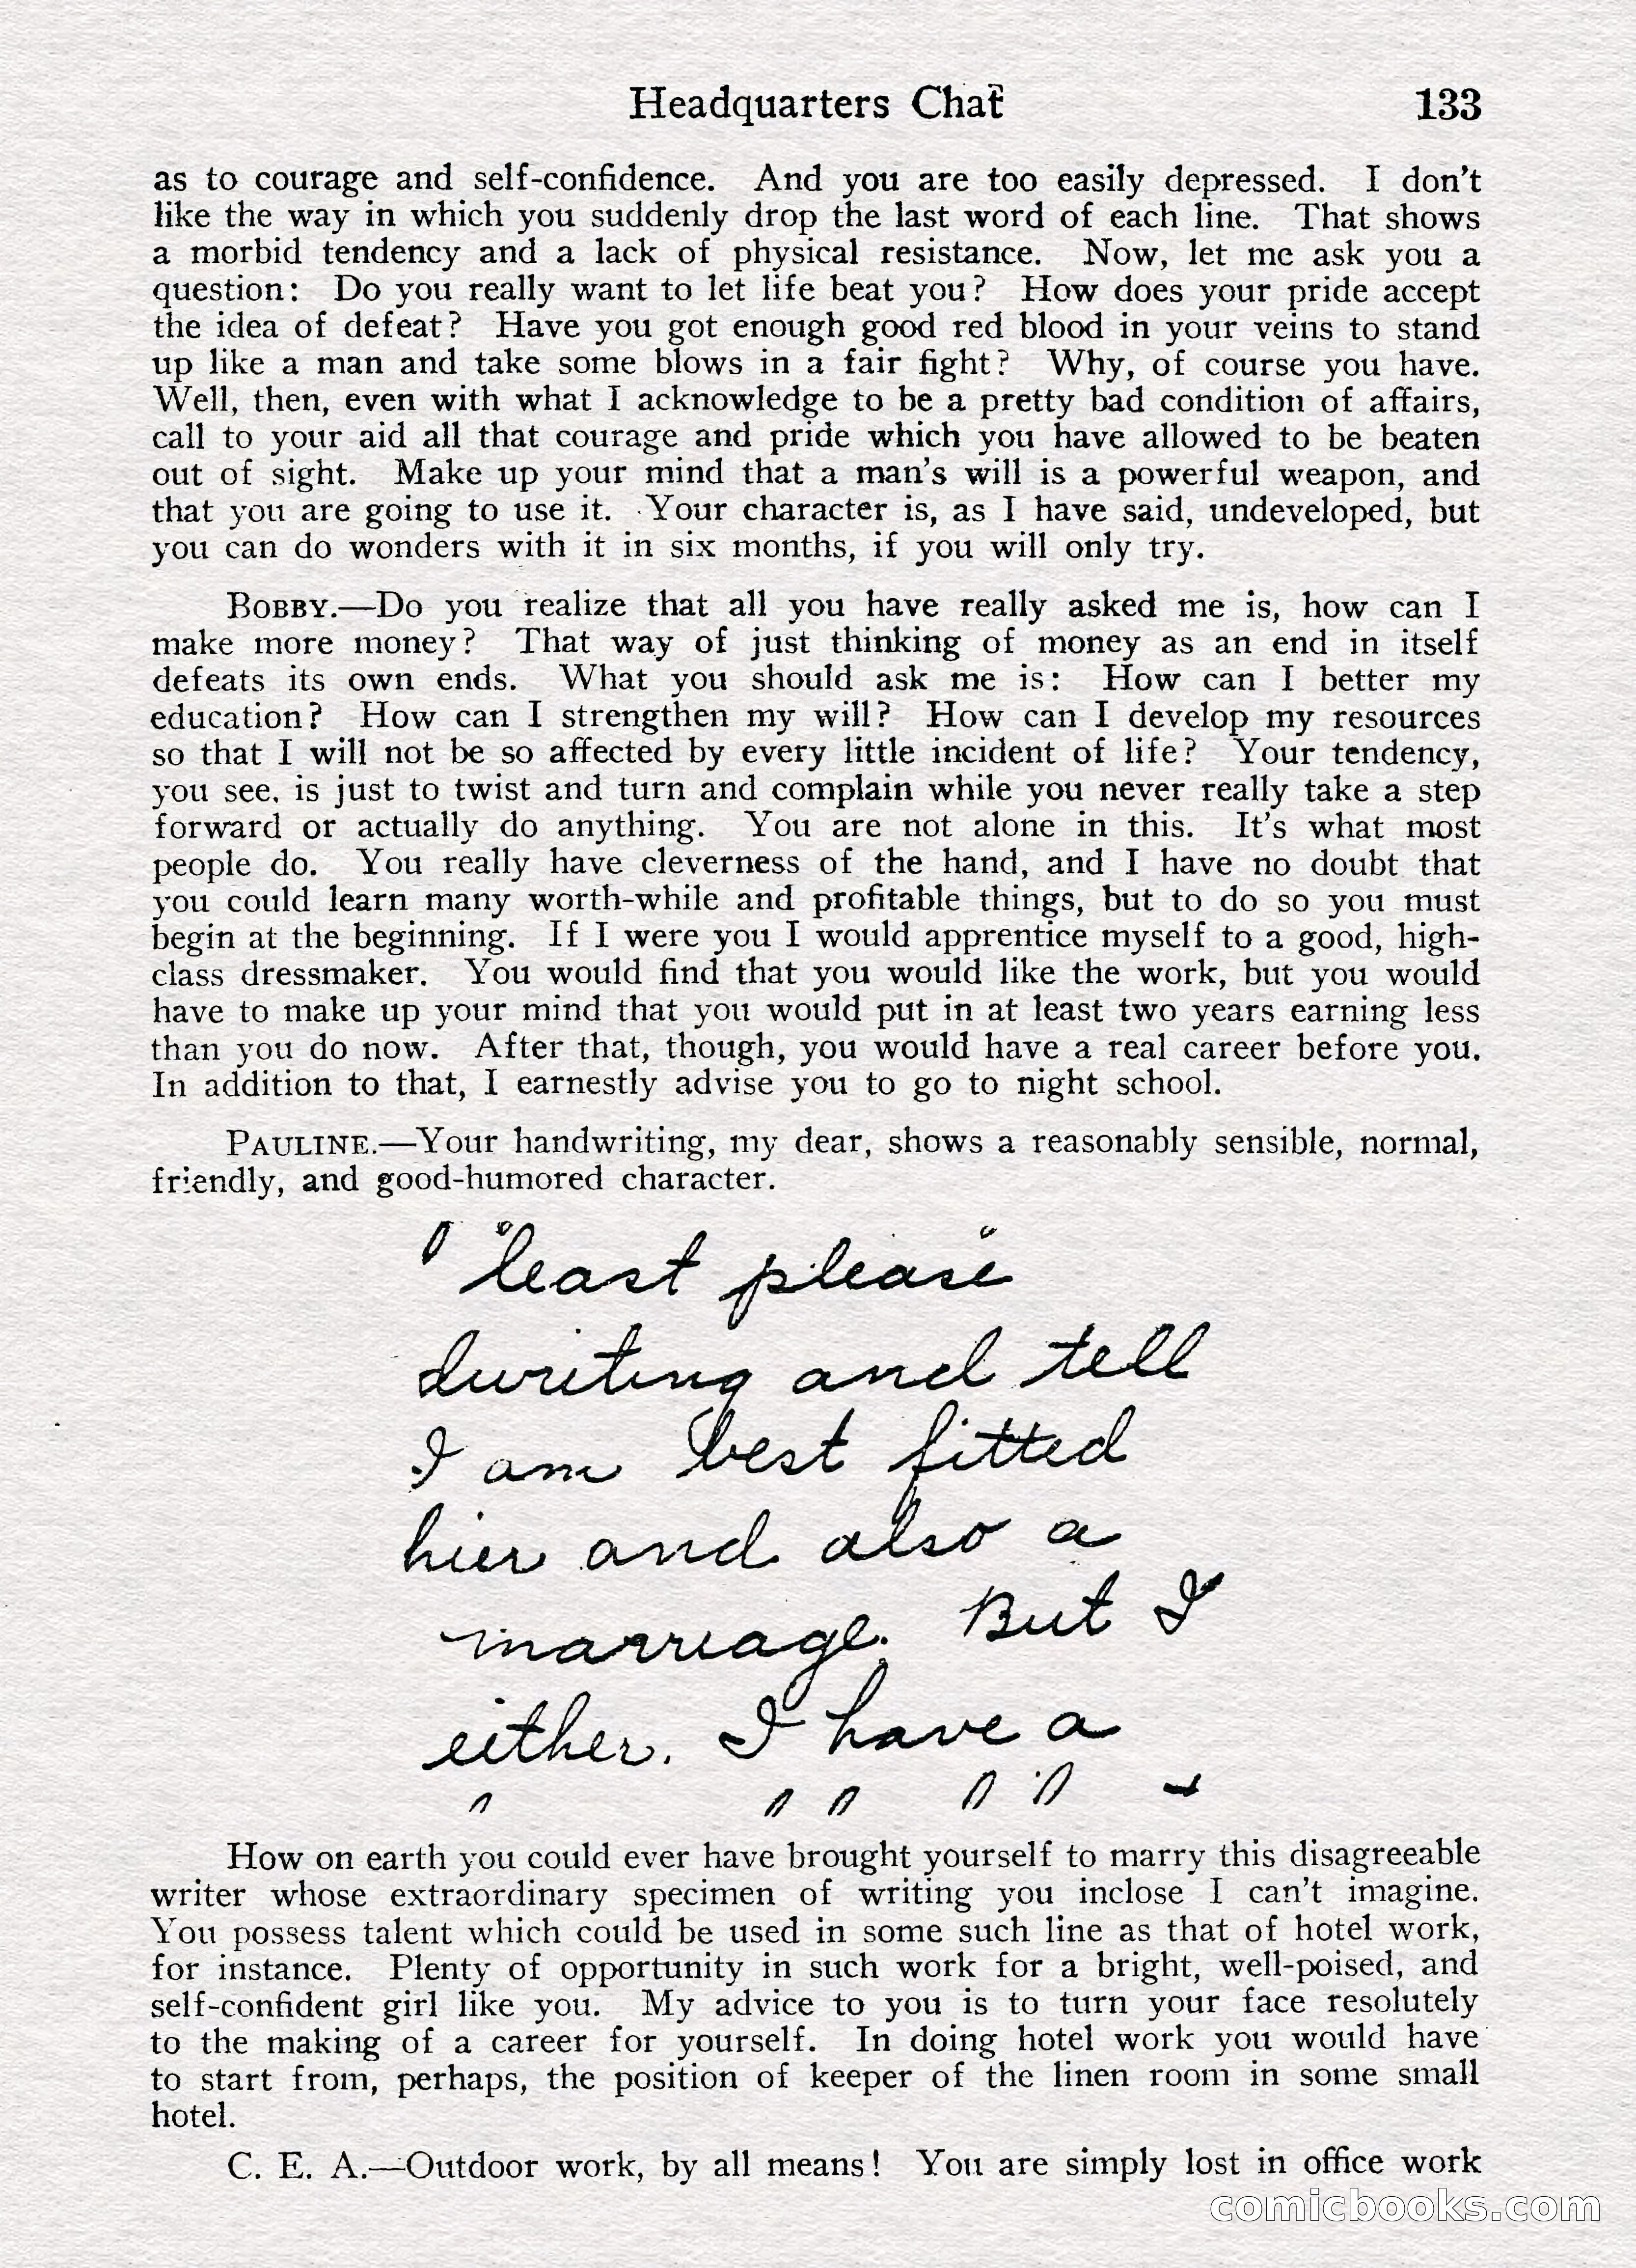 Headquarters Chat 133
as to courage and self-confidence. And you are too easily depressed. I don't
like the way in which you suddenly drop the last word of each line. That shows
a morbid tendency and a lack of physical resistance. Now, let me ask you a
question: Do you really want to let life beat you? How does your pride accept
the idea of defeat? Have you got enough good red blood in your veins to stand
up like a man and take some blows in a fair fight? Why, of course you have.
Well, then, even with what I acknowledge to be a pretty bad condition of affairs,
call to your aid all that courage and pride which you have allowed to be beaten
out of sight. Make up your mind that a man's will is a powerful weapon, and
that you are going to use it. Your character is, as I have said, undeveloped, but
you can do wonders with it in six months, if you will only try.
BOBBY.—Do you realize that all you have really asked me is, how can I
make more money? That way of just thinking of money as an end in itself
defeats its own ends. What you should ask me is: How can I better my
education? How can I strengthen my will? How can I develop my resources
so that I will not be so affected by every little incident of life? Your tendency,
you see, is just to twist and turn and complain while you never really take a step
forward or actually do anything. You are not alone in this. It's what most
people do. You really have cleverness of the hand, and I have no doubt that
you could learn many worth-while and profitable things, but to do so you must
begin at the beginning. If I were you I would apprentice myself to a good, high-
class dressmaker. You would find that you would like the work, but you would
have to make up your mind that you would put in at least two years earning less
than you do now. After that, though, you would have a real career before you.
In addition to that, I earnestly advise you to go to night school.
PAULINE.—Your handwriting, my dear, shows a reasonably sensible, normal,
friendly, and good-humored character.
least please
dwriting and tell
I am best fitted
hier and also a
marriage. But I
either. I have a
How on earth you could ever have brought yourself to marry this disagreeable
writer whose extraordinary specimen of writing you inclose I can't imagine.
You possess talent which could be used in some such line as that of hotel work,
for instance. Plenty of opportunity in such work for a bright, well-poised, and
self-confident girl like you. My advice to you is to turn your face resolutely
to the making of a career for yourself. In doing hotel work you would have
to start from, perhaps, the position of keeper of the linen room in some small
hotel.
C. E. A.—Outdoor work, by all means! You are simply lost in office work
comicbooks.com